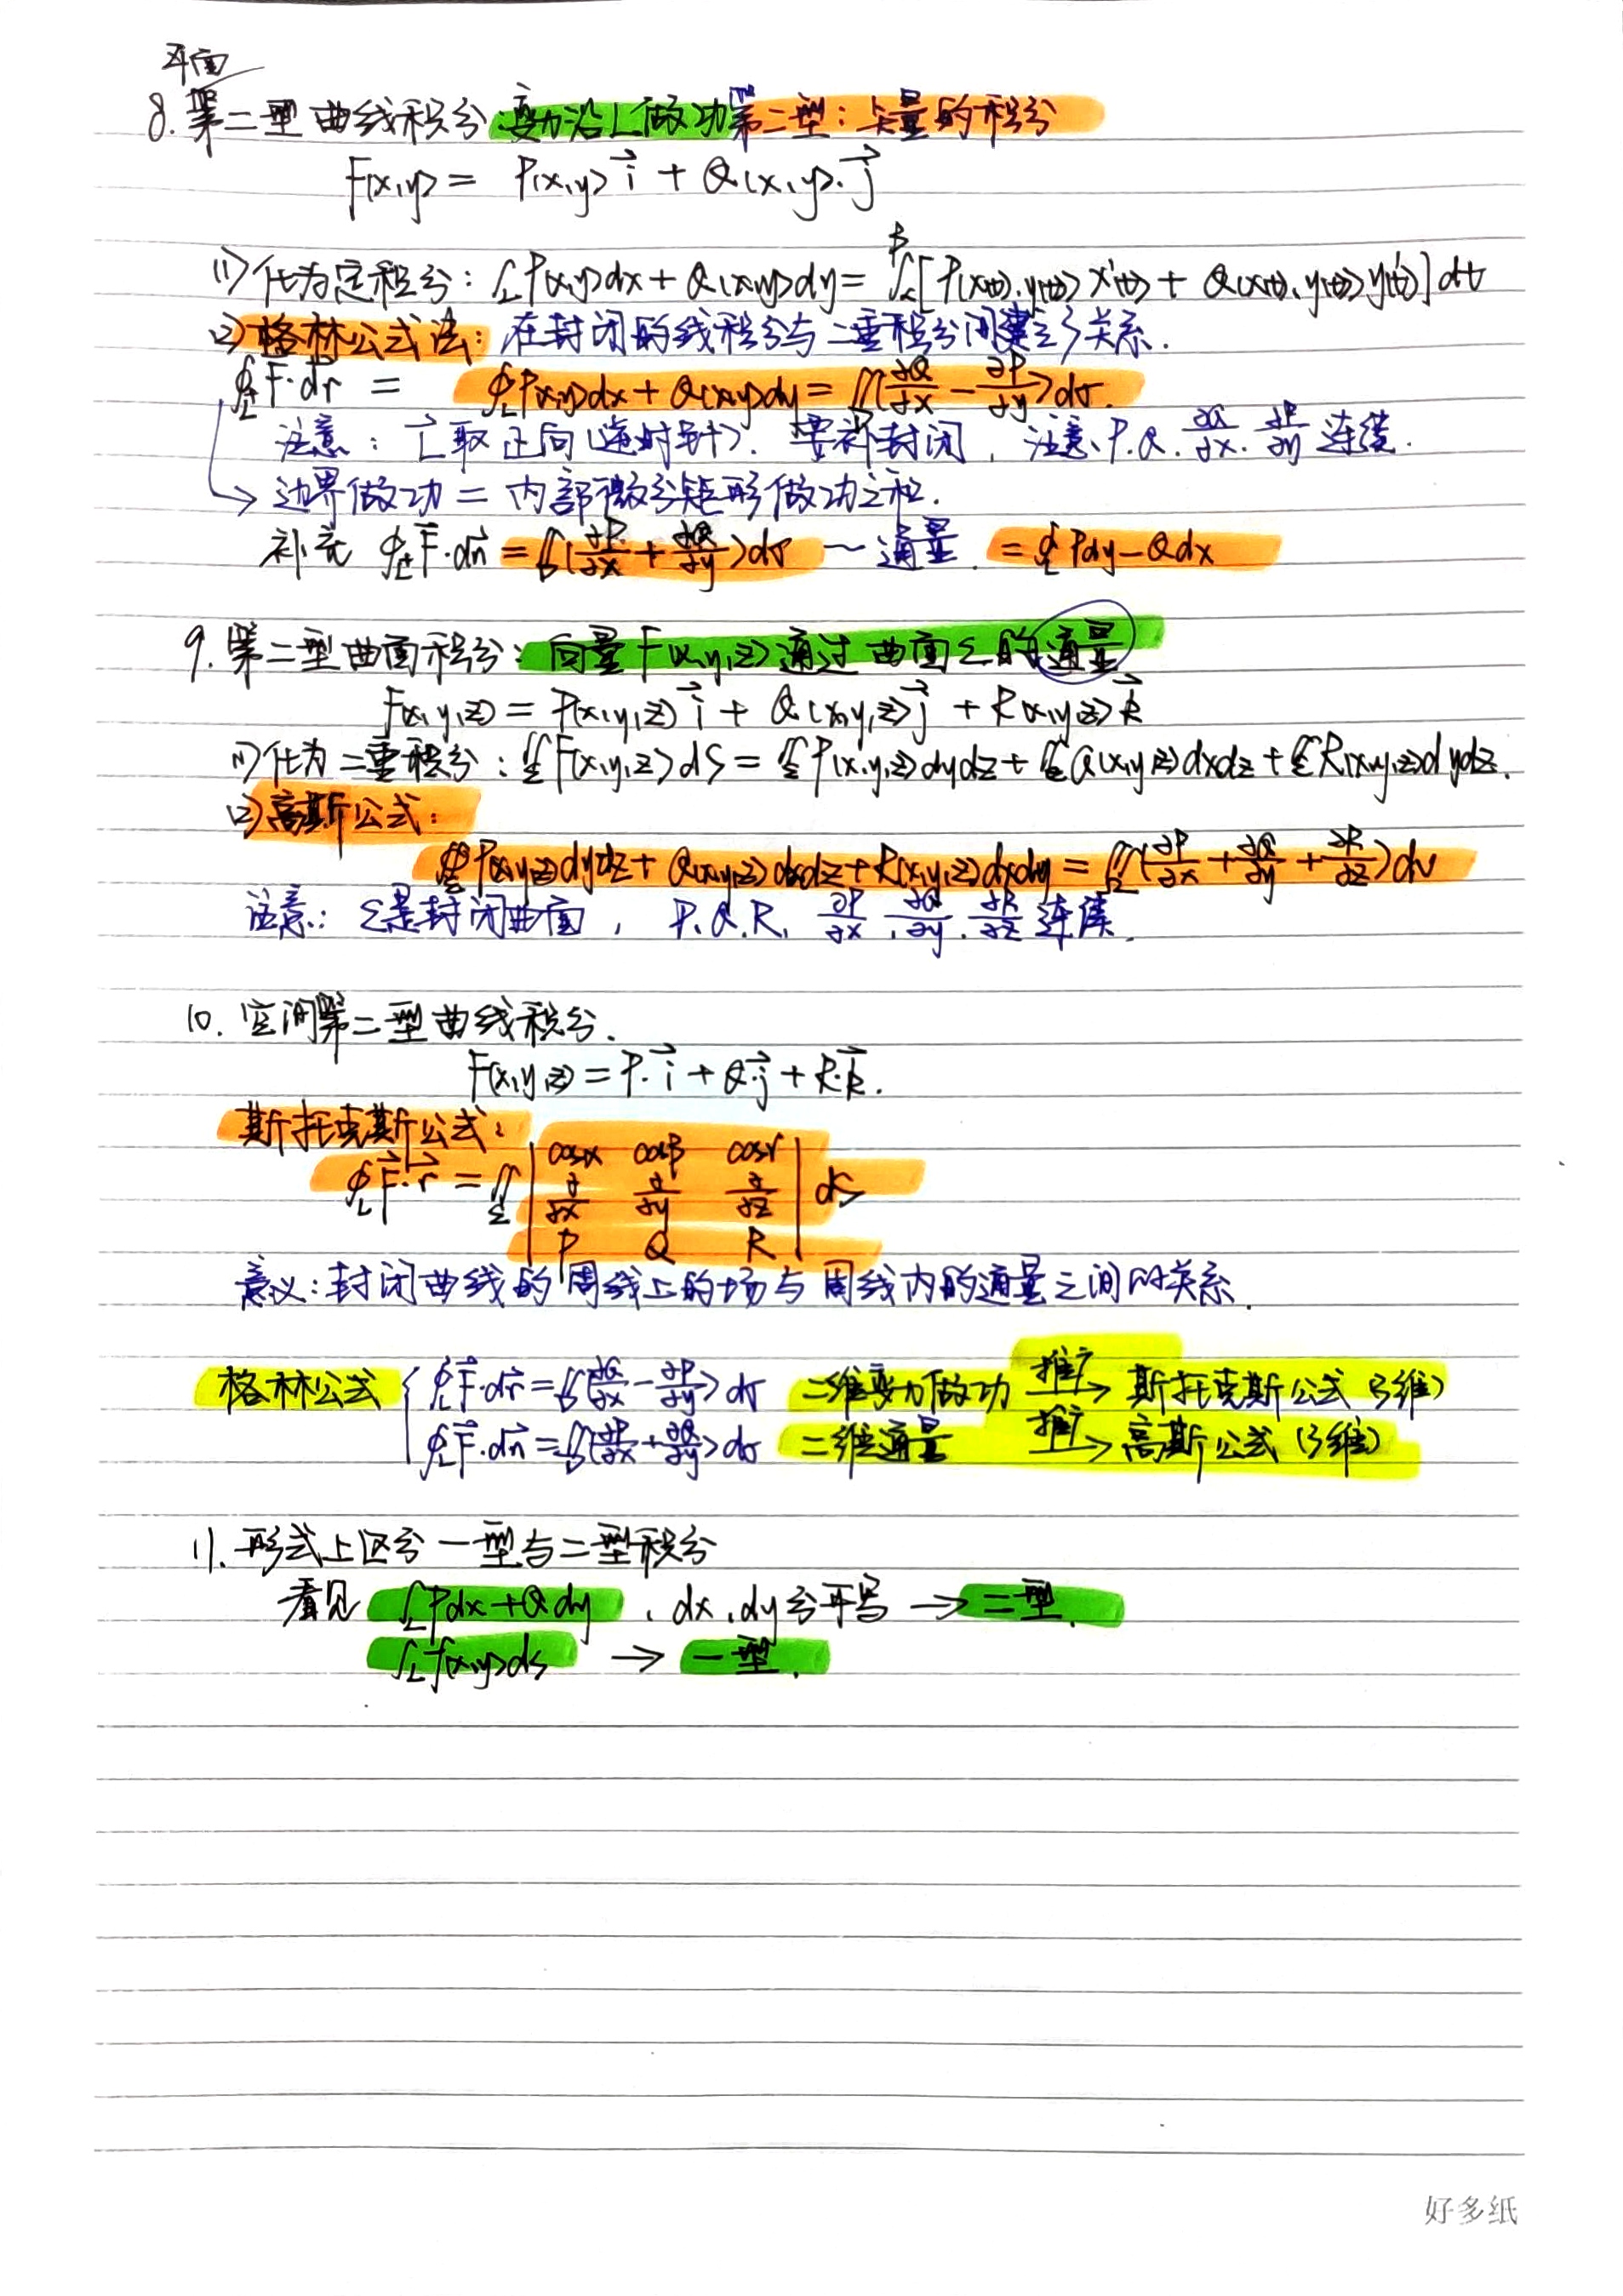 平面
8. 第二型曲线积分 变力沿L做功 第二型：矢量的积分
F(x,y) = P(x,y) i⃗ + Q(x,y)·j⃗
(1) 化为定积分：∫_L P(x,y)dx + Q(x,y)dy = ∫_α^β [P(x(t),y(t)) x'(t) + Q(x(t),y(t)) y'(t)] dt
(2) 格林公式法：在封闭的线积分与二重积分间建立了关系.
∮_L F⃗·dr⃗ = ∮_L P(x,y)dx + Q(x,y)dy = ∬(∂Q/∂x - ∂P/∂y)dσ.
注意：L取正向(逆时针). 要补封闭, 注意、P.Q.∂Q/∂x.∂P/∂y 连续.
→ 边界做功 = 内部微分矩形做功之和.
补充 ∮_L F⃗·dn⃗ = ∬_D(∂P/∂x + ∂Q/∂y)dσ ～ 通量. = ∮_L Pdy - Qdx
9. 第二型曲面积分：向量F(x,y,z)通过曲面Σ的通量
F(x,y,z) = P(x,y,z) i⃗ + Q(x,y,z) j⃗ + R(x,y,z) k⃗
(1) 化为二重积分：∬_Σ F(x,y,z) dS = ∬_Σ P(x,y,z)dydz + ∬_Σ Q(x,y,z)dxdz + ∬_Σ R(x,y,z)dydz.
(2) 高斯公式：
∯_Σ P(x,y,z)dydz + Q(x,y,z)dxdz + R(x,y,z)dxdy = ∭_Ω(∂P/∂x + ∂Q/∂y + ∂R/∂z)dv
注意：Σ是封闭曲面, P.Q.R. ∂P/∂x.∂Q/∂y.∂R/∂z 连续.
10. 空间第二型曲线积分.
F(x,y,z) = P·i⃗ + Q·j⃗ + R·k⃗.
斯托克斯公式：
∮_L F⃗·r⃗ = ∬_Σ | cosα cosβ cosγ ; ∂/∂x ∂/∂y ∂/∂z ; P Q R | dS
意义：封闭曲线的周线上的场与周线内的通量之间的关系.
格林公式 { ∮_L F⃗·dr⃗ = ∬_D(∂Q/∂x - ∂P/∂y)dσ 二维变力做功 推广→ 斯托克斯公式(3维)
∮_L F⃗·dn⃗ = ∬_D(∂P/∂x + ∂Q/∂y)dσ 二维通量 推广→ 高斯公式(3维)
11. 形式上区分一型与二型积分
看见 ∫_L Pdx + Qdy , dx,dy分开写 → 二型.
∫_L f(x,y)ds → 一型.
好多纸